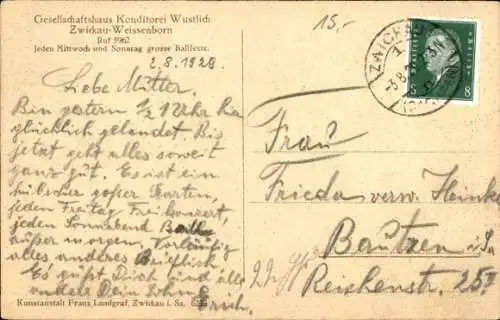 Gesellschaftshaus Konditorei Wustlich
Zwickau-Weissenborn
Ruf 3962
Jeden Mittwoch und Sonntag grosser Ballfeste.
2.8.1929
Lebe Mutter.
Bin gestern ½2 Uhr hier
glücklich gelandet. Bis
jetzt geht alles soweit
ganz gut. Es ist ein
großer Garten,
jeden Freitag Frei konzert,
jeden Sonnabend Ball
außer morgen. Vorläufig
alles anderes Brieflich
Es grüßt Dich und alle
andere Dein Sohn
Erich.
Kunstanstalt Franz Landgraf, Zwickau i. Sa.
15,-
ZWICKAU
8 8
Frau
Frieda verw. Heinke
Bautzen i/Sa
Reichenstr. 25